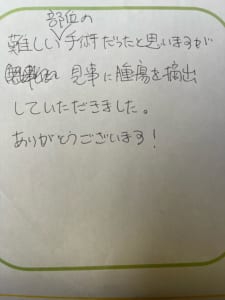 部位の
難しい手術だったと思いますが
見事に腫瘍を摘出
していただきました。
ありがとうございます!